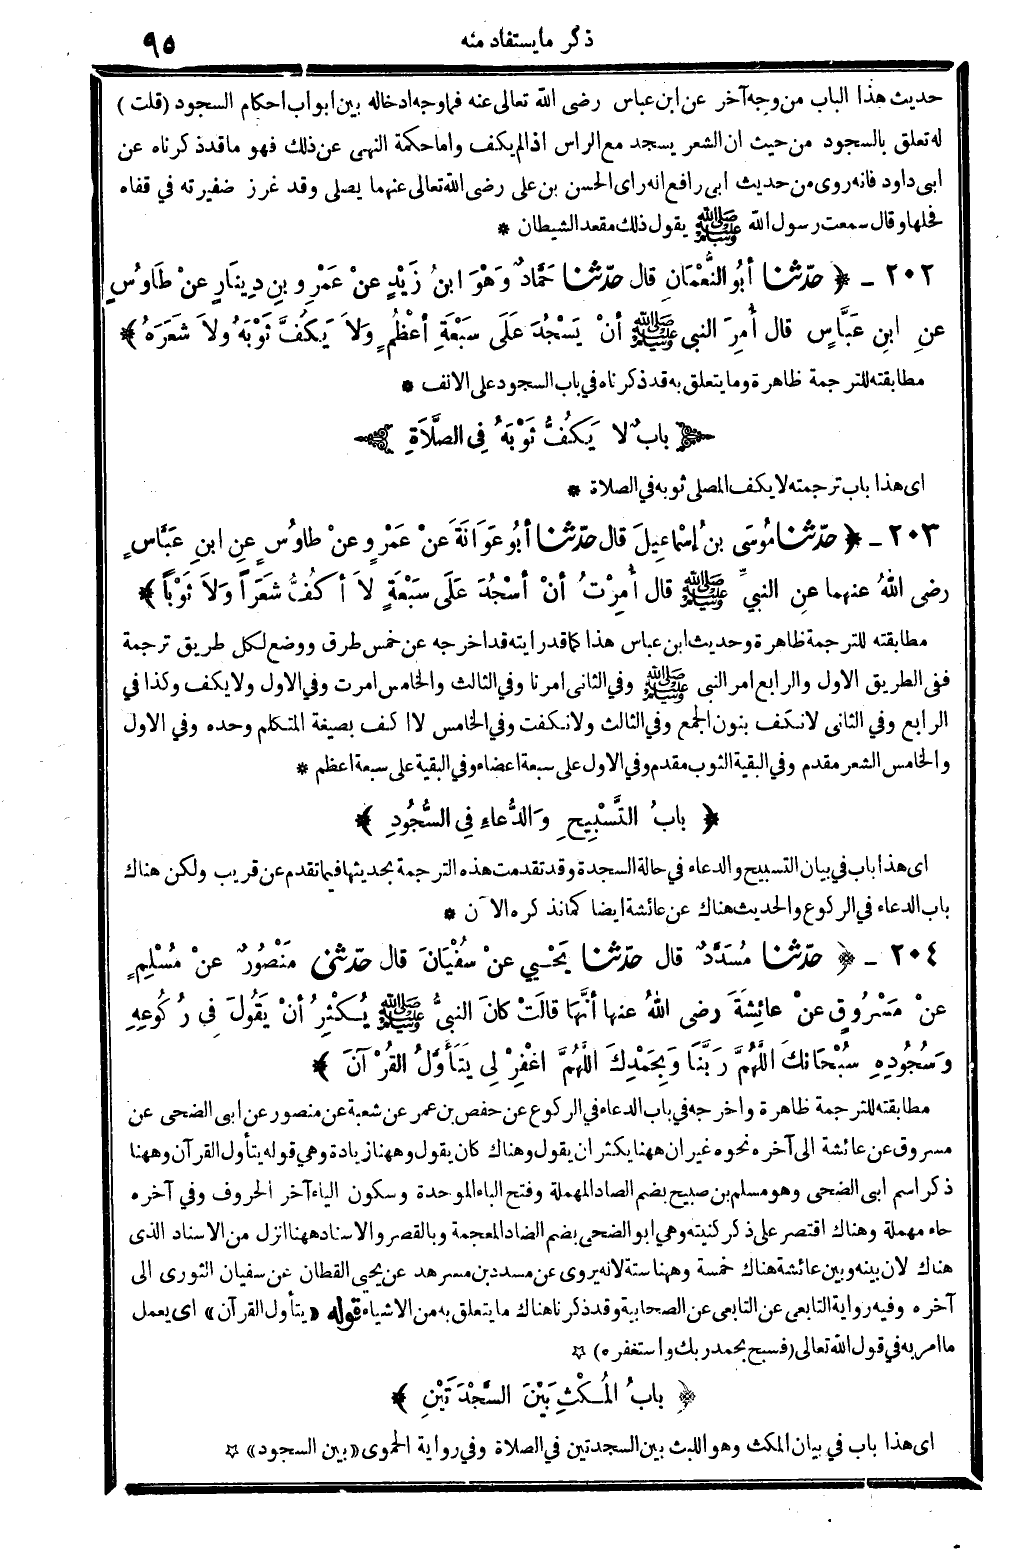 ذكر مايستفاد منه
٩٥
حديث هذا الباب من وجه آخر عن ابن عباس رضى الله تعالى عنه فما وجه ادخاله بين ابواب احكام السجود (قلت)
له تعلق بالسجود من حيث ان الشعر يسجد مع الراس اذا لم يكف واما حكمة النهى عن ذلك فهو ما قد ذكرناه عن
ابى داود فانه روى من حديث ابى رافع انه راى الحسن بن على رضى الله تعالى عنهما يصلى وقد غرز ضفيرته في قفاه
فحلها وقال سمعت رسول الله ﷺ يقول ذلك مقعد الشيطان *
٢٠٢ - ﴿ حدّثنا أبُو النُّعْمَانِ قال حدّثنا حَمَّادٌ وَهْوَ ابنُ زَيْدٍ عنْ عَمْرِو بنِ دِينَارٍ عنْ طَاوُسٍ
عنِ ابنِ عَبَّاسٍ قال أُمِرَ النبي ﷺ أنْ يَسْجُدَ عَلَى سَبْعَةِ أعْظُمٍ وَلاَ يَكُفَّ ثَوْبَهُ ولاَ شَعَرَهُ ﴾
مطابقته للترجمة ظاهرة وما يتعلق به قد ذكرناه في باب السجود على الانف *
﴿ بابٌ لا يَكُفُّ ثَوْبَهُ فِي الصَّلَاةِ ﴾
اى هذا باب ترجمته لا يكف المصلى ثوبه في الصلاة *
٢٠٣ - ﴿ حدّثنا مُوسَى بنُ إسْماعِيلَ قال حدّثنا أبُو عَوَانَةَ عنْ عَمْرٍو عنْ طاوُسٍ عنِ ابنِ عَبَّاسٍ
رضى اللهُ عنهما عنِ النبيِّ ﷺ قال أُمِرْتُ أنْ أسْجُدَ عَلَى سَبْعَةٍ لاَ أكُفُّ شَعَرَاً وَلاَ ثَوْبَاً ﴾
مطابقته للترجمة ظاهرة وحديث ابن عباس هذا كما قد رايته قد اخرجه عن خمس طرق ووضع لكل طريق ترجمة
ففى الطريق الاول والرابع امر النبى ﷺ وفي الثانى امرنا وفي الثالث والخامس امرت وفي الاول ولا يكف وكذا في
الرابع وفي الثانى لا نكف بنون الجمع وفي الثالث ولا نكفت وفي الخامس لا اكف بصيغة المتكلم وحده وفي الاول
والخامس الشعر مقدم وفي البقية الثوب مقدم وفي الاول على سبعة اعضاء وفي البقية على سبعة اعظم *
﴿ بابُ التَّسْبِيحِ وَالدُّعاءِ فِي السُّجُودِ ﴾
اى هذا باب في بيان التسبيح والدعاء في حالة السجدة وقد تقدمت هذه الترجمة بحديثها فيما تقدم عن قريب ولكن هناك
باب الدعاء في الركوع والحديث هناك عن عائشة ايضا كما نذكره الآن *
٢٠٤ - ﴿ حدّثنا مُسَدَّدٌ قال حدّثنا يَحْيي عنْ سُفْيَانَ قال حدّثنى مَنْصُورٌ عنْ مُسْلِمٍ
عنْ مَسْرُوقٍ عنْ عائِشَةَ رضى اللهُ عنها أنَّهَا قالَتْ كانَ النبيُّ ﷺ يُكْثِرُ أنْ يَقُولَ فِي رُكُوعِهِ
وَسُجُودِهِ سُبْحَانَكَ اللَّهُمَّ رَبَّنَا وَبِحَمْدِكَ اللَّهُمَّ اغْفِرْ لِي يَتَأَوَّلُ القُرْآنَ ﴾
مطابقته للترجمة ظاهرة واخرجه في باب الدعاء في الركوع عن حفص بن عمر عن شعبة عن منصور عن ابى الضحى عن
مسروق عن عائشة الى آخره نحوه غير ان ههنا يكثر ان يقول وهناك كان يقول وههنا زيادة وهي قوله يتأول القرآن وههنا
ذكر اسم ابى الضحى وهو مسلم بن صبيح بضم الصاد المهملة وفتح الباء الموحدة وسكون الياء آخر الحروف وفي آخره
حاء مهملة وهناك اقتصر على ذكر كنيته وهي ابو الضحى بضم الضاد المعجمة وبالقصر والاسناد ههنا انزل من الاسناد الذى
هناك لان بينه وبين عائشة هناك خمسة وههنا ستة لانه يروى عن مسدد بن مسرهد عن يحيى القطان عن سفيان الثورى الى
آخره وفيه رواية التابعى عن التابعى عن الصحابية وقد ذكرنا هناك ما يتعلق به من الاشياء قوله «يتأول القرآن» اى يعمل
ما امر به في قول الله تعالى (فسبح بحمد ربك واستغفره) ☆
﴿ بابُ المُكْثِ بَيْنَ السَّجْدَتَيْنِ ﴾
اى هذا باب في بيان المكث وهو اللبث بين السجدتين في الصلاة وفي رواية الحموى «بين السجود» ☆